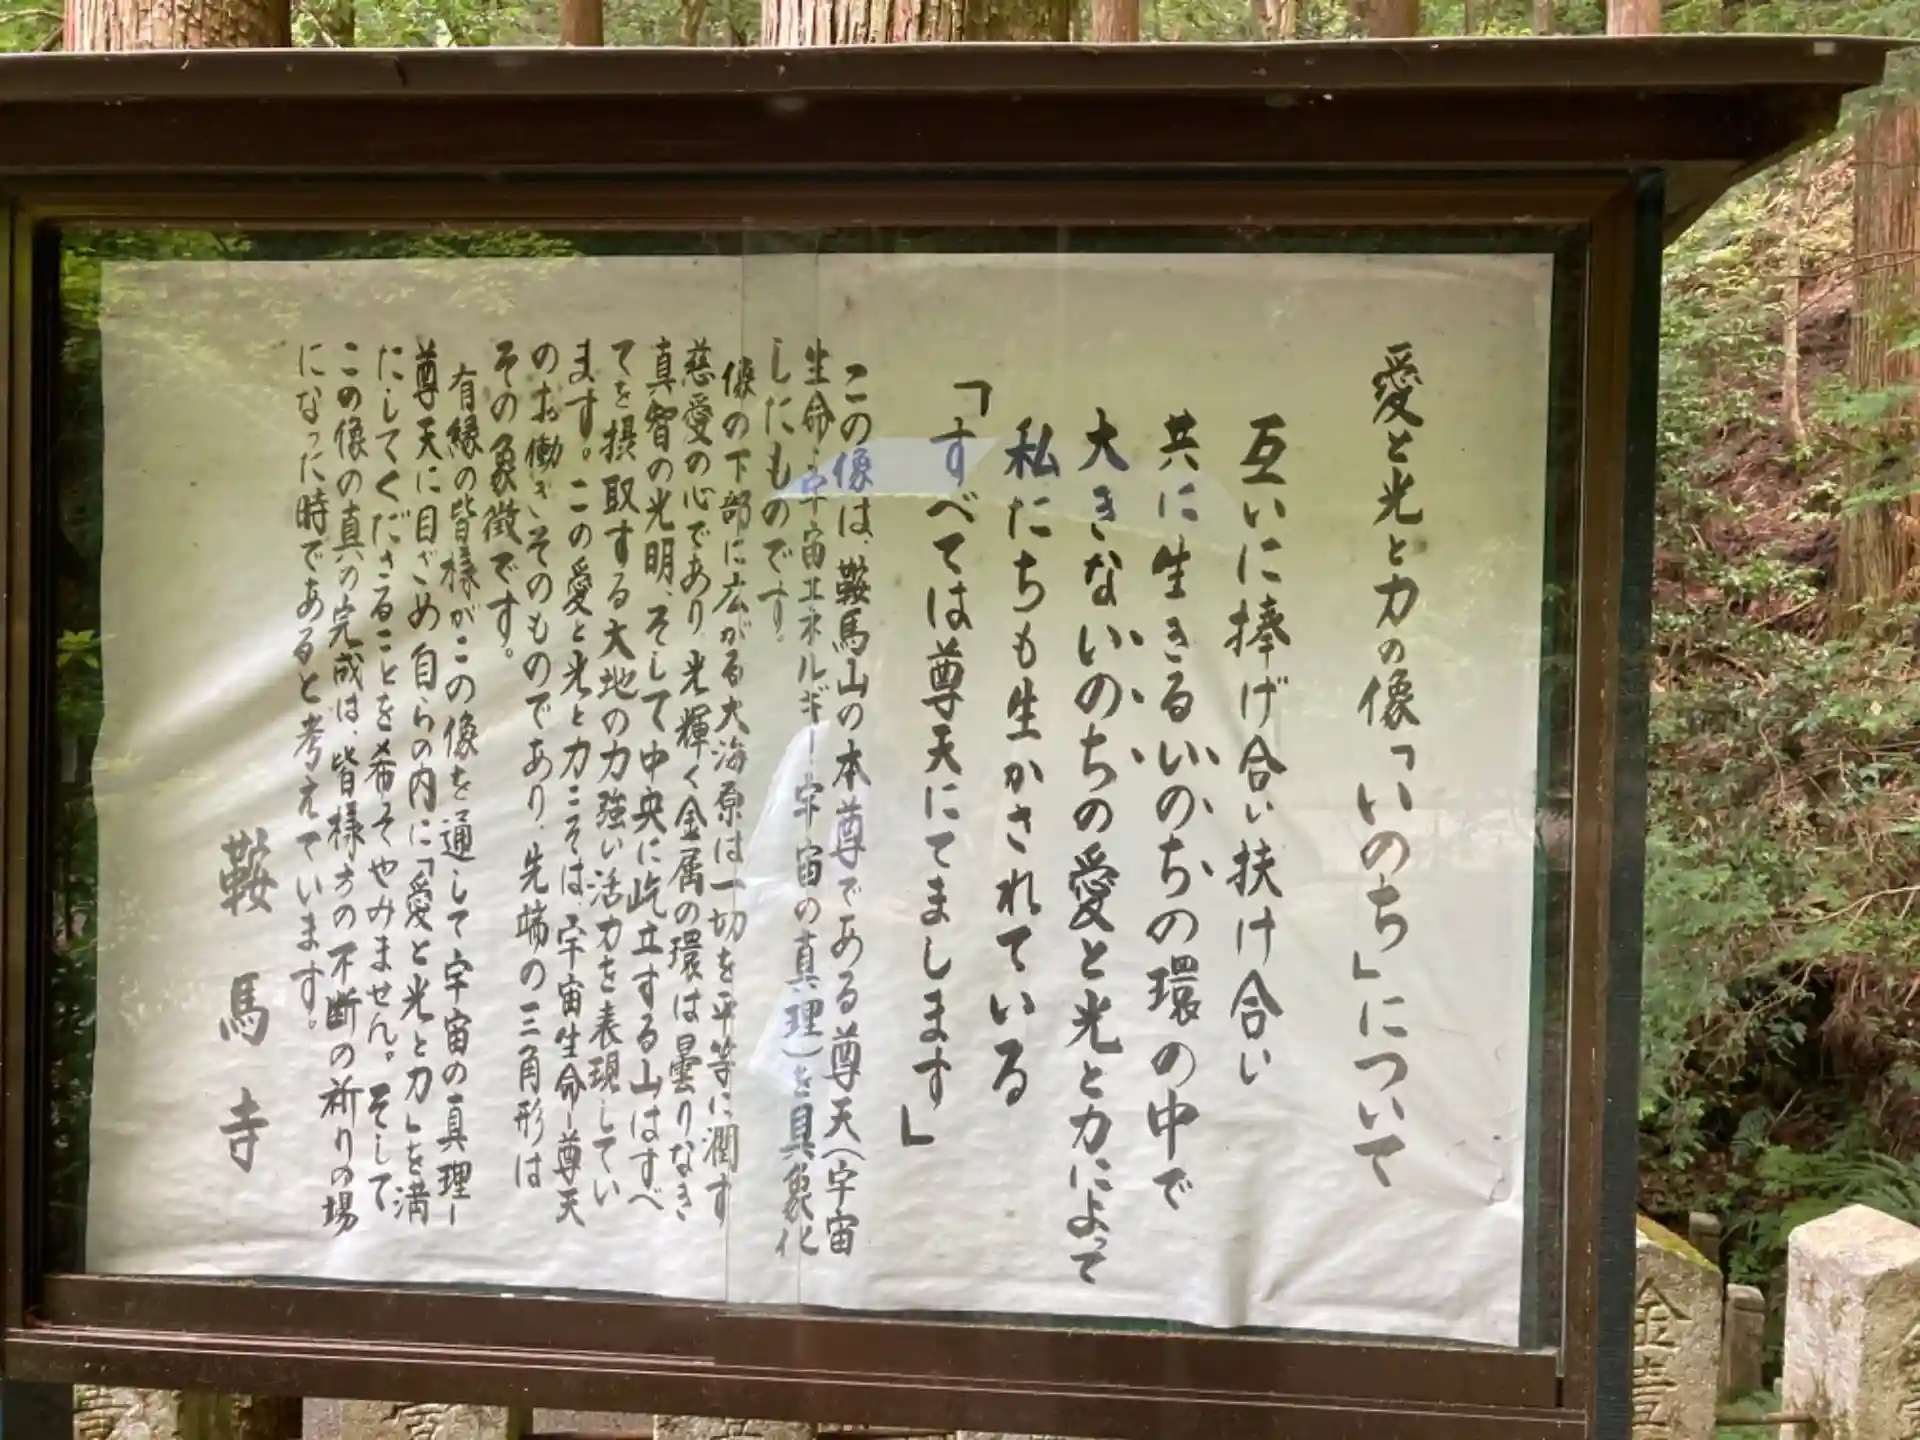 愛と光と力の像「いのち」について
互いに捧げ合い扶け合い
共に生きるいのちの環の中で
大きないのちの愛と光と力によって
私たちも生かされている
「すべては尊天にてまします」
この像は、鞍馬山の本尊である尊天（宇宙
生命・宇宙エネルギー・宇宙の真理）を具象化
したものです。
像の下部に広がる大海原は一切を平等に潤す
慈愛の心であり、光輝く金属の環は曇りなき
真智の光明、そして中央に屹立する山はすべ
てを摂取する大地の力強い活力を表現してい
ます。この愛と光と力こそは、宇宙生命・尊天
のお働きそのものであり、先端の三角形は
その象徴です。
有縁の皆様がこの像を通して宇宙の真理・
尊天に目ざめ自らの内に「愛と光と力」を満
たしてくださることを希そやみません。そして
この像の真の完成は、皆様方の不断の祈りの場
になった時であると考えています。
鞍馬寺